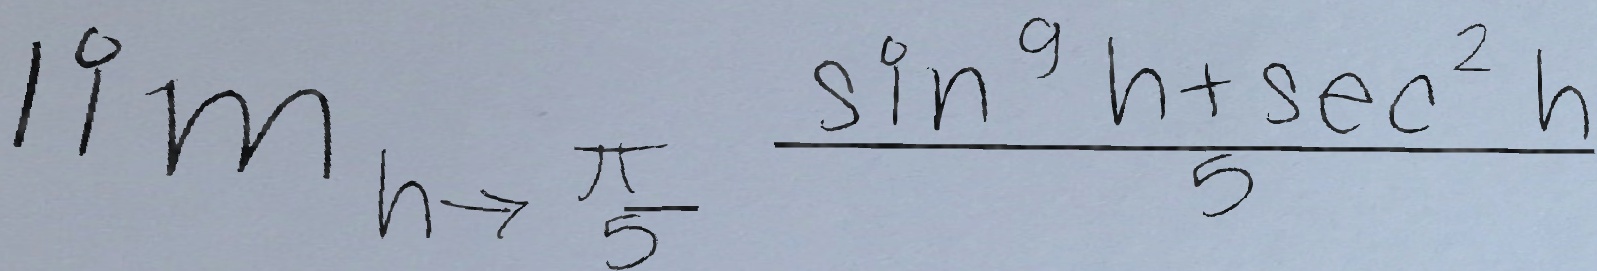 \lim_{h \to \frac{\pi}{5}} \frac{\sin^9 h + \sec^2 h}{5}